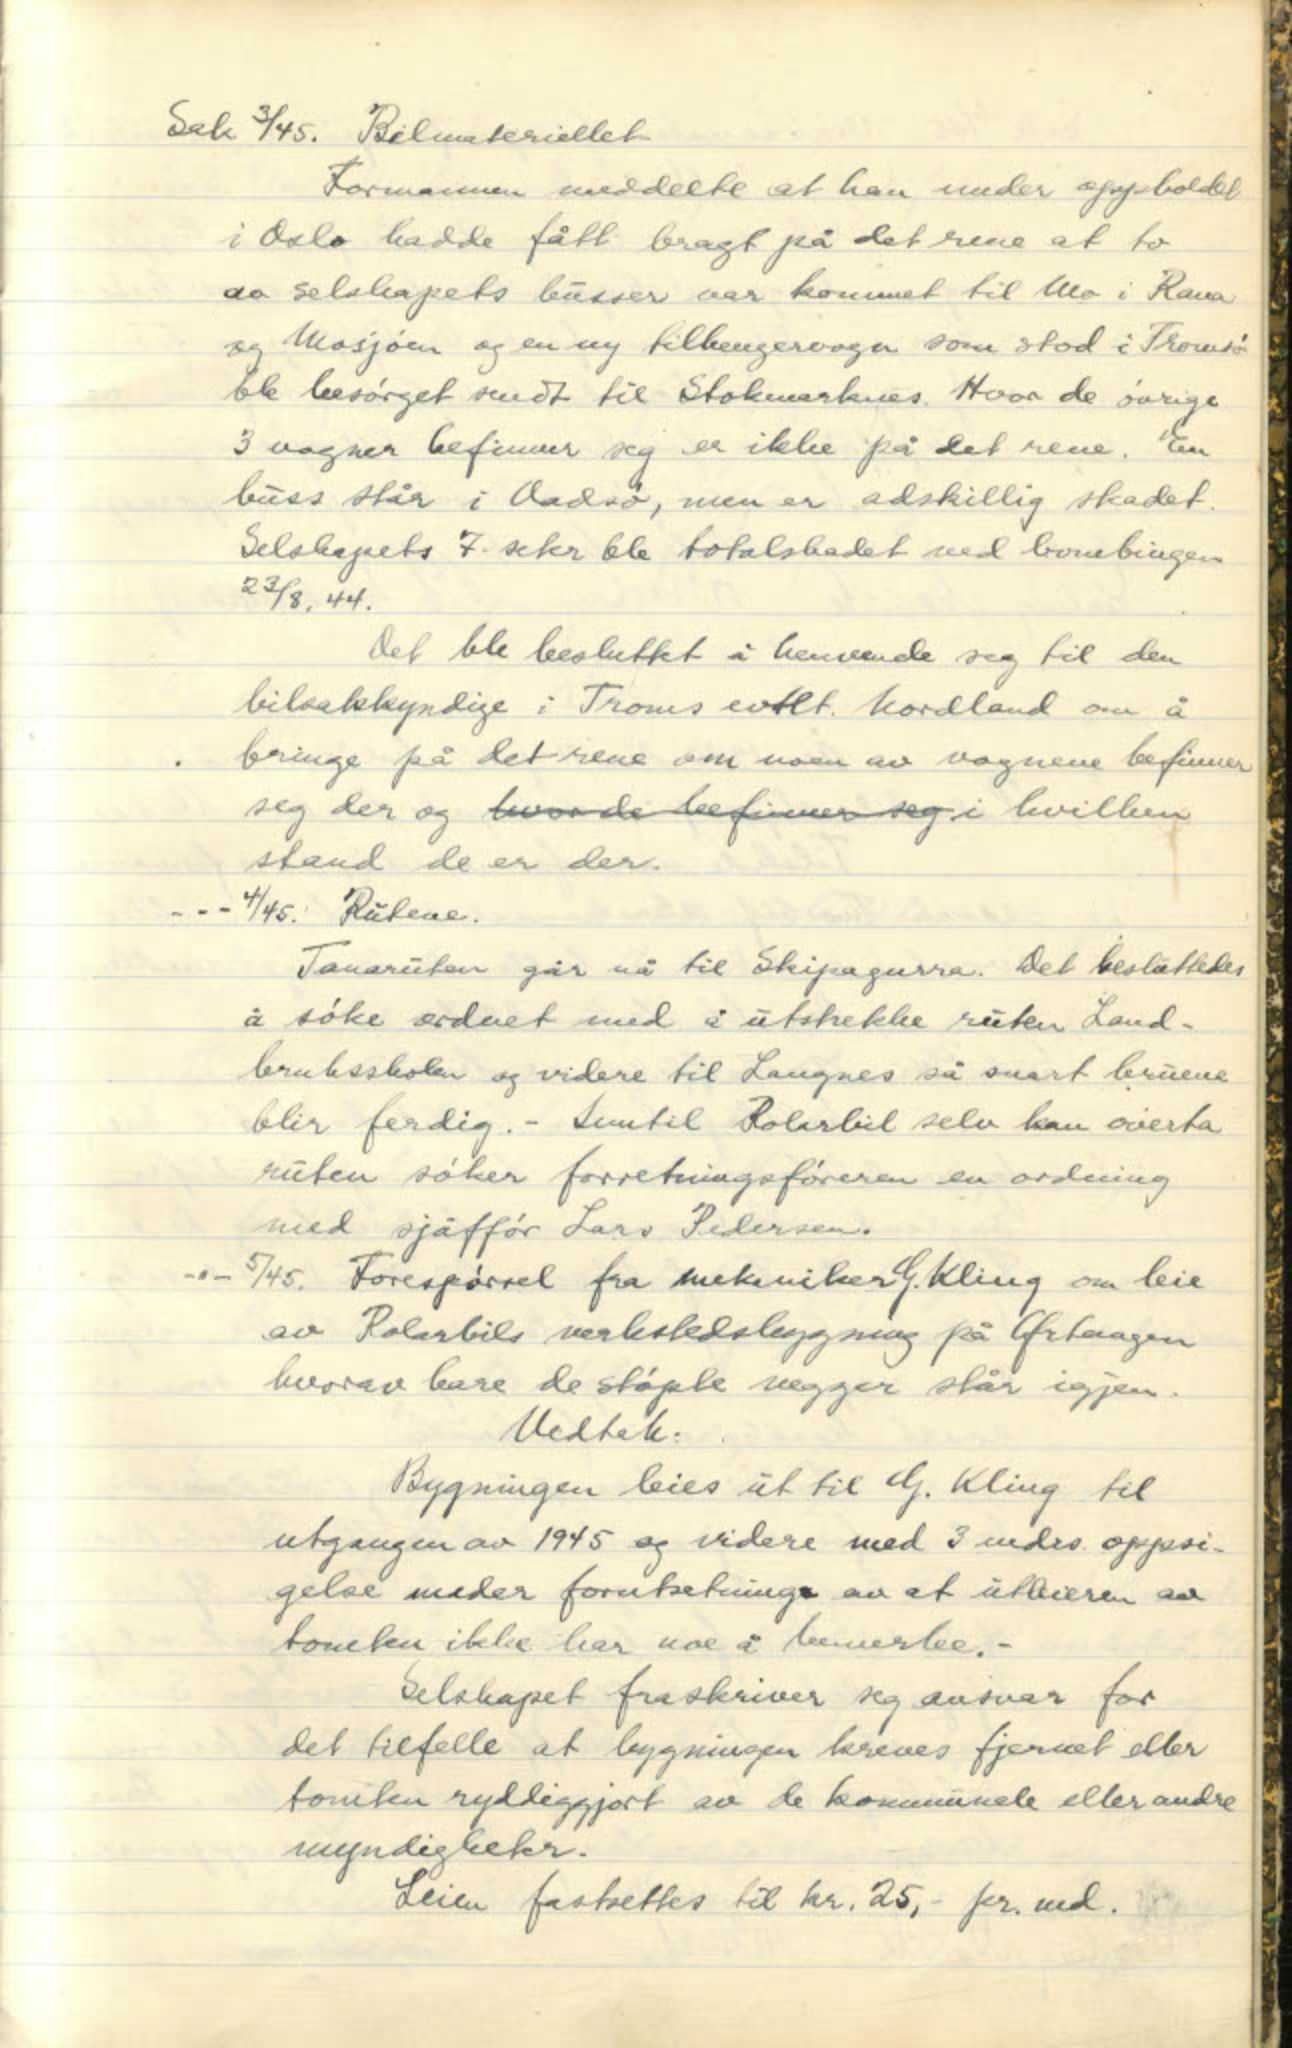 Sak 3/45. Bilmateriellet
Formannen meddelte at han under oppholdet
i Oslo hadde fått bragt på det rene at to
av selskapets busser var kommet til Mo i Rana
og Mosjøen og en ny tilhengervogn som stod i Tromsø
ble besørget sendt til Stokmarknes. Hvor de øvrige
3 vogner befinner seg er ikke på det rene. En
buss står i Vadsø, men er adskillig skadet.
Selskapets 7. seter ble totalskadet ved bombingen
23/8. 44.
Det ble besluttet å henvende seg til den
bilsakkyndige i Troms evtlt. Nordland om å
bringe på det rene om noen av vognene befinner
seg der og hvor de befinner seg i hvilken
stand de er der.
- - - 4/45. Rutene.
Tanaruten går nå til Skipagurra. Det besluttedes
å søke ordnet med å utstrekke ruten Land-
bruksskolen og videre til Langnes så snart bruene
blir ferdig. - Inntil Polarbil selv kan overta
ruten søker forretningsføreren en ordning
med sjåffør Lars Pedersen.
-"- 5/45. Forespørsel fra mekaniker G. Kling om leie
av Polarbils verkstedsbygning på Ørtangen
hvorav bare de støpte vegger står igjen.
Vedtak:
Bygningen leies ut til G. Kling til
utgangen av 1945 og videre med 3 mdrs. oppsi-
gelse under forutsetning av at utleieren av
tomten ikke har noe å bemerke. -
Selskapet fraskriver seg ansvar for
det tilfelle at bygningen kreves fjernet eller
tomten ryddiggjort av de kommunale eller andre
myndigheter.
Leien fastsettes til kr. 25,- pr. md.